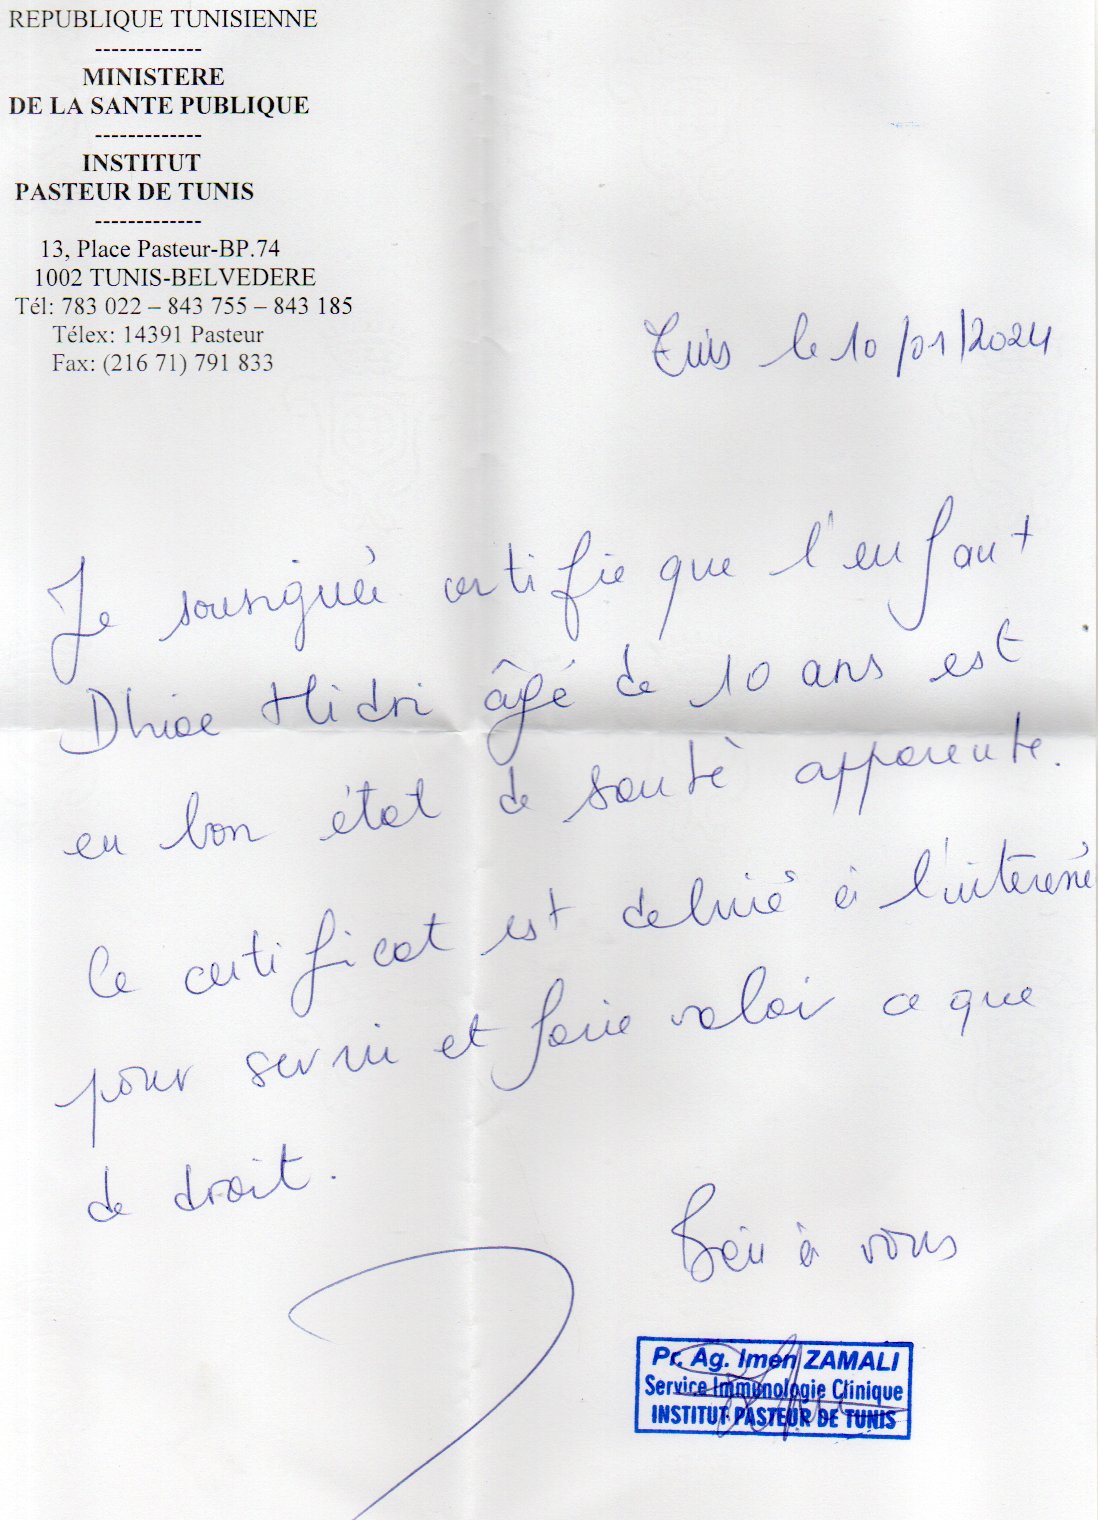 REPUBLIQUE TUNISIENNE
-------------
MINISTERE
DE LA SANTE PUBLIQUE
-------------
INSTITUT
PASTEUR DE TUNIS
-------------
13, Place Pasteur-BP.74
1002 TUNIS-BELVEDERE
Tél: 783 022 – 843 755 – 843 185
Télex: 14391 Pasteur
Fax: (216 71) 791 833
Tunis le 10/01/2024
Je soussignée certifie que l'enfant
Dhiae Hidri âgé de 10 ans est
en bon état de santé apparente.
Ce certificat est delivré à l'intéressé
pour servir et faire valoir ce que
de droit.
Bien à vous
Pr. Ag. Imen ZAMALI
Service Immunologie Clinique
INSTITUT PASTEUR DE TUNIS